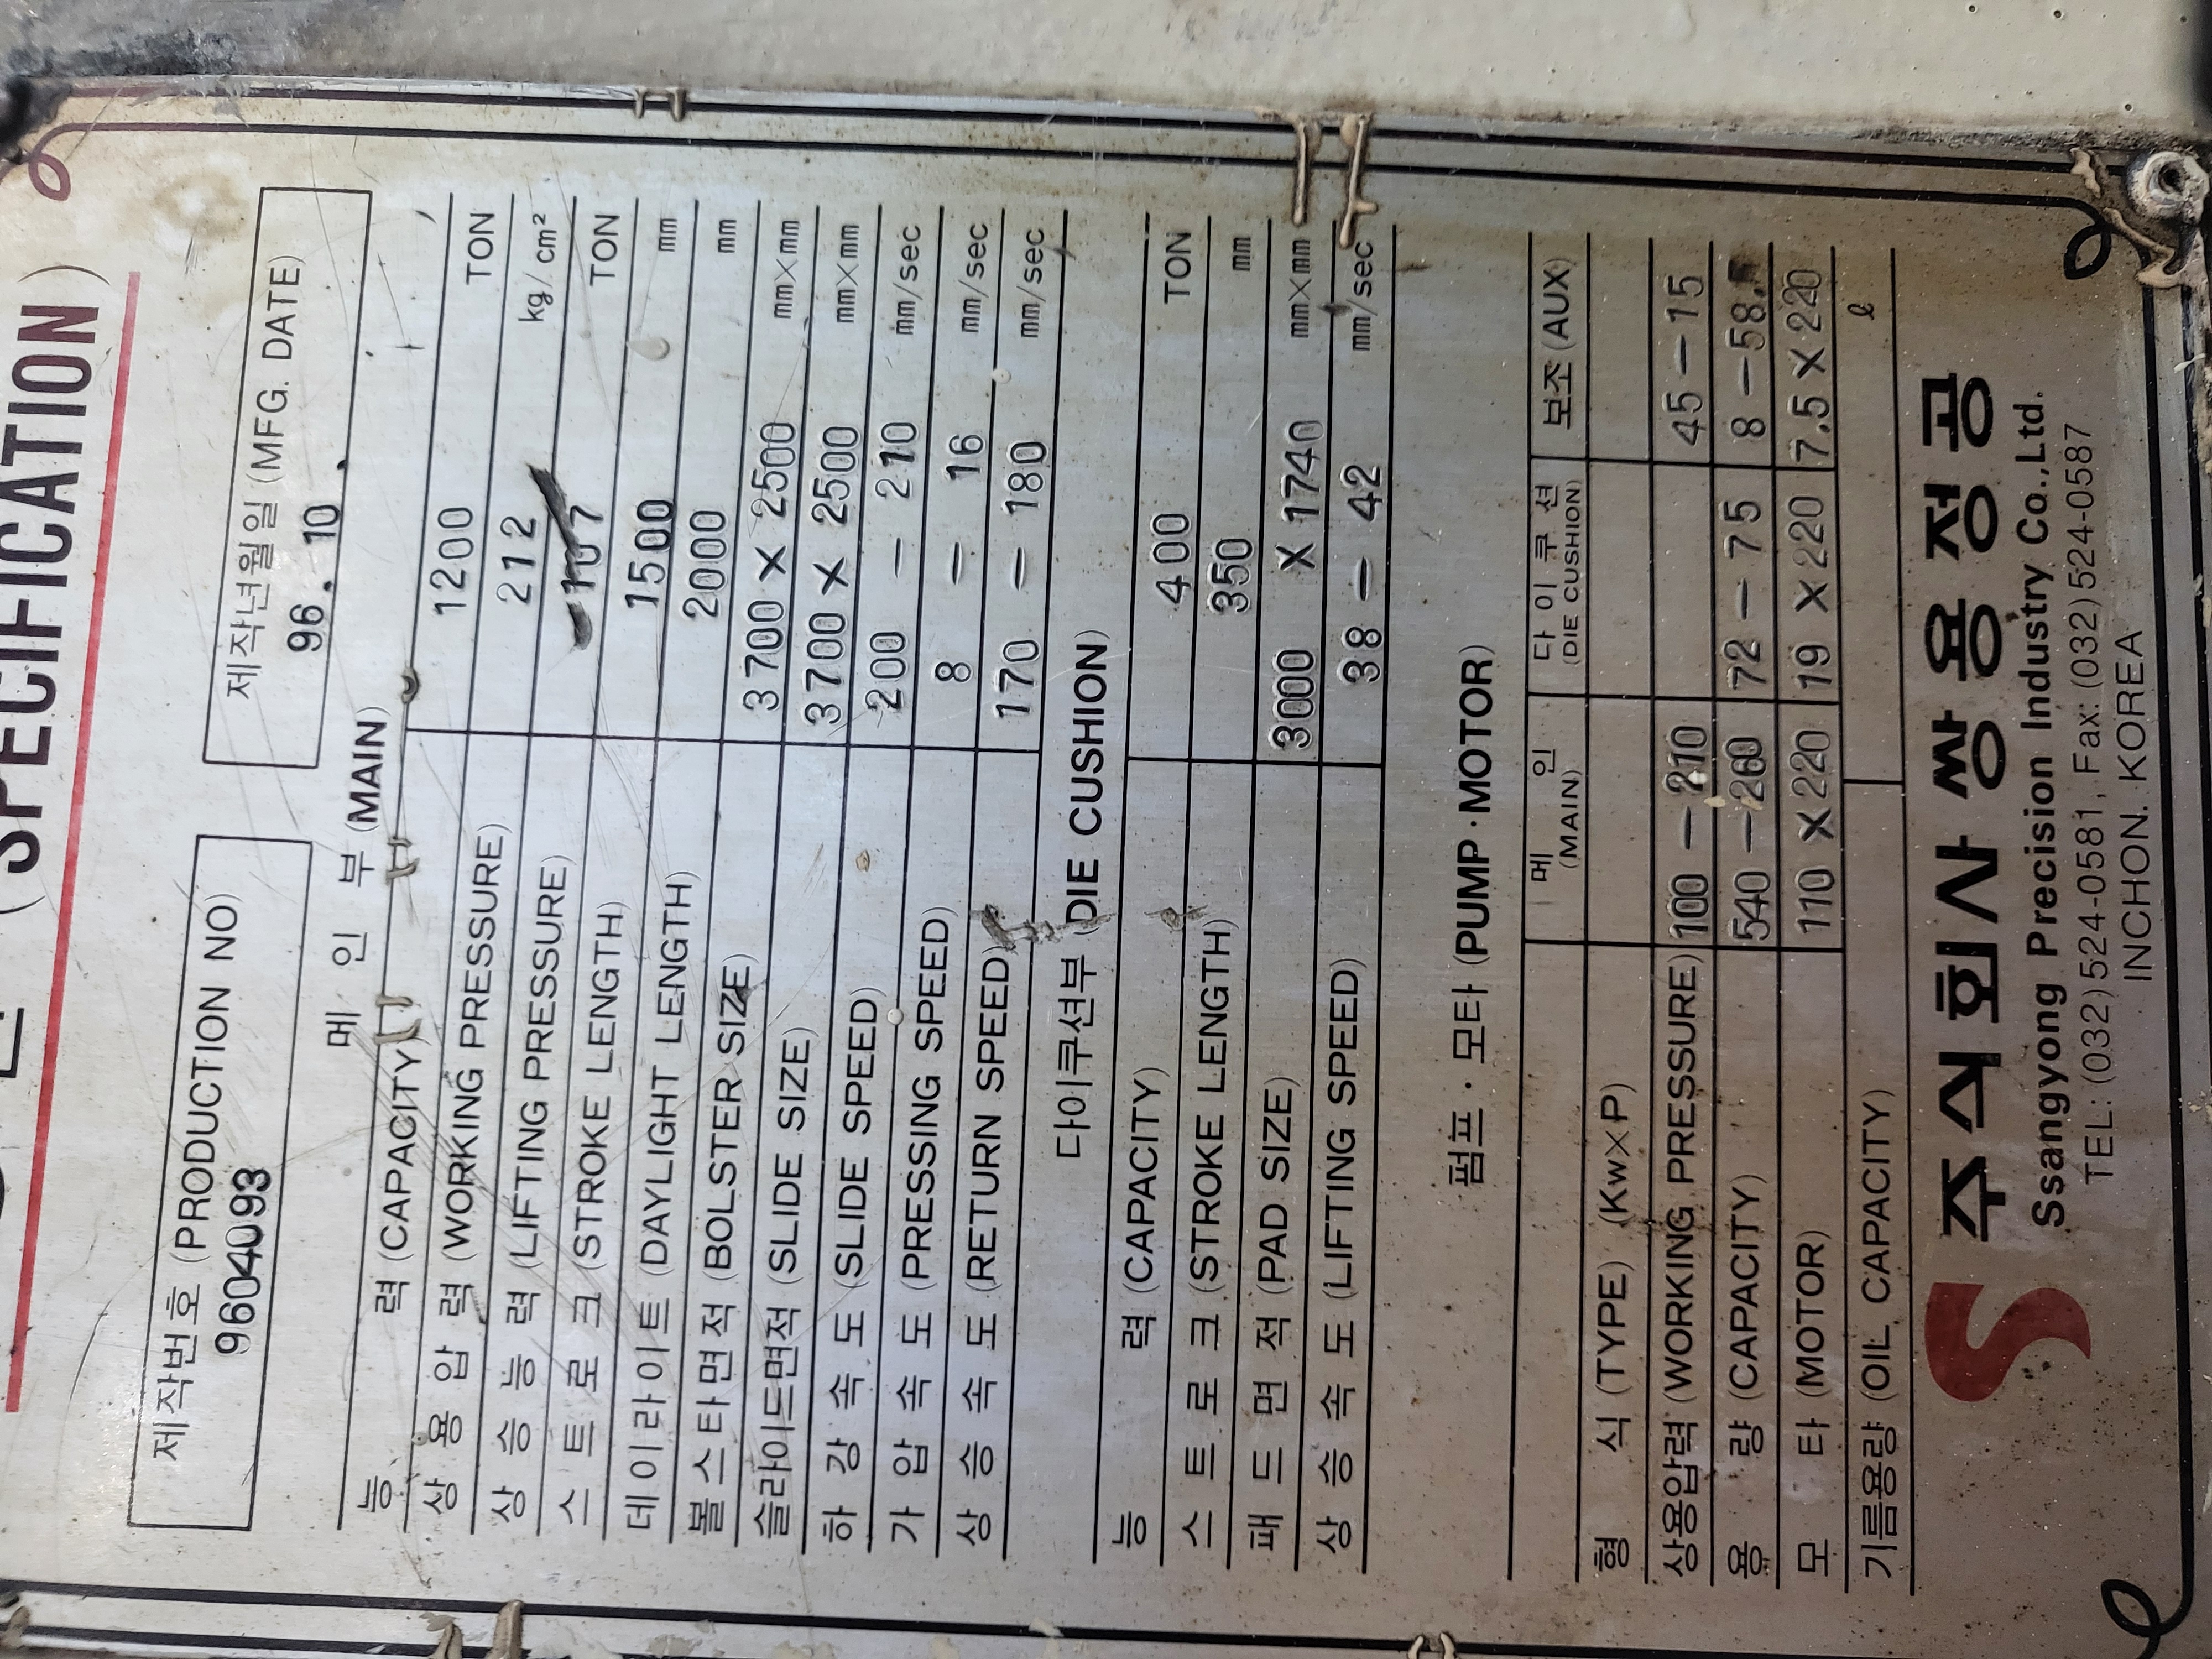 (SPECIFICATION)
제작번호 (PRODUCTION NO) 제작년월일 (MFG. DATE)
9604093 96. 10.
메 인 부 (MAIN)
능 력 (CAPACITY) 1200 TON
상 용 압 력 (WORKING PRESSURE) 212 kg/cm²
상 승 능 력 (LIFTING PRESSURE) TON
스 트 로 크 (STROKE LENGTH) 1500 mm
데 이 라 이 트 (DAYLIGHT LENGTH) 2000 mm
볼 스 타 면 적 (BOLSTER SIZE) 3700 × 2500 mm×mm
슬라이드면적 (SLIDE SIZE) 3700 × 2500 mm×mm
하 강 속 도 (SLIDE SPEED) 200 - 210 mm/sec
가 압 속 도 (PRESSING SPEED) 8 - 16 mm/sec
상 승 속 도 (RETURN SPEED) 170 - 180 mm/sec
다이쿠션부 (DIE CUSHION)
능 력 (CAPACITY) 400 TON
스 트 로 크 (STROKE LENGTH) 350 mm
패 드 면 적 (PAD SIZE) 3000 × 1740 mm×mm
상 승 속 도 (LIFTING SPEED) 38 - 42 mm/sec
펌프 · 모타 (PUMP · MOTOR)
메 인 (MAIN) 다 이 쿠 션 (DIE CUSHION) 보조 (AUX)
형 식 (TYPE) (Kw×P)
상용압력 (WORKING PRESSURE) 100 - 210 45 - 15
용 량 (CAPACITY) 540 - 260 72 - 75 8 - 58.
모 타 (MOTOR) 110 × 220 19 × 220 7.5 × 220
기름용량 (OIL CAPACITY) ℓ
주식회사 쌍용정공
Ssangyong Precision Industry Co.,Ltd.
TEL: (032) 524-0581, Fax: (032) 524-0587
INCHON. KOREA